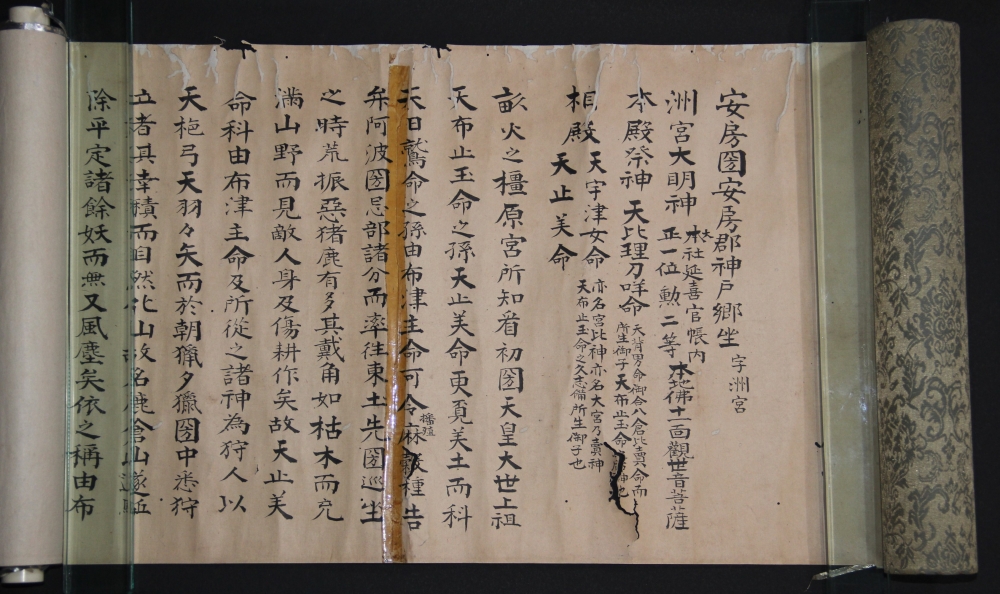 安房圀安房郡神戸郷坐 字洲宮
洲宮大明神 本社延喜官帳内 正一位勲二等 本地佛十一面觀世音菩薩
本殿祭神 天比理刀咩命 天背男命御合八倉比賣命而所生御子天布止玉命
相殿 天宇津女命 亦名宮比神亦名大宮乃賣神天布止玉命之久志備所生御子也
相殿 天止美命
畝火之橿原宮所知看初圀天皇大世上祖
天布止玉命之孫天止美命更覓美土而科
天日鷲命之孫由布津主命可令麻穀播殖種告
弁阿波圀忌部諸分而率往東土先圀巡坐
之時荒振惡猪鹿有多其戴角如枯木而充
滿山野而見敵人身及傷耕作矣故天止美
命科由布津主命及所従之諸神為狩人以
天梔弓天羽々矢而於朝獵夕獵圀中悉狩
立者其幸積而自然化山故名鹿倉山遂
除平定諸餘妖而無又風塵矣依之稱由布